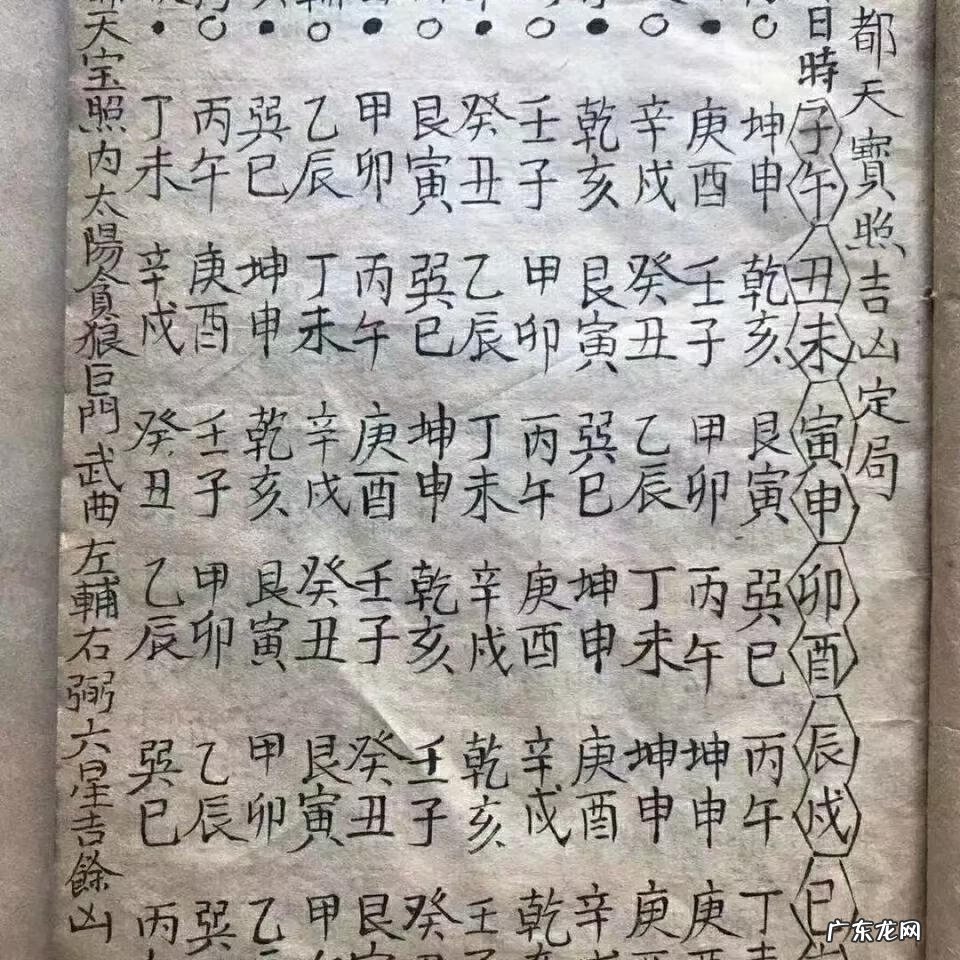 都天寶照吉凶定局
日時子午丑未寅申卯酉辰戌巳
坤申乾亥艮寅巽巳丙午丁
庚酉壬子甲卯丙午坤申庚
辛戌癸丑乙辰丁未坤申庚
乾亥艮寅巽巳坤申庚酉辛
壬子甲卯丙午庚酉辛戌乾
癸丑乙辰丁未辛戌乾亥壬
艮寅巽巳坤申乾亥壬子癸
甲卯丙午庚酉壬子癸丑艮
乙辰丁未辛戌癸丑艮寅甲
巽巳坤申乾亥艮寅甲卯乙
丙午庚酉壬子甲卯乙辰巽
丁未辛戌癸丑乙辰巽巳丙
天宝照内太陽貪狼巨門武曲左輔右弼六星吉餘凶
广东龙网